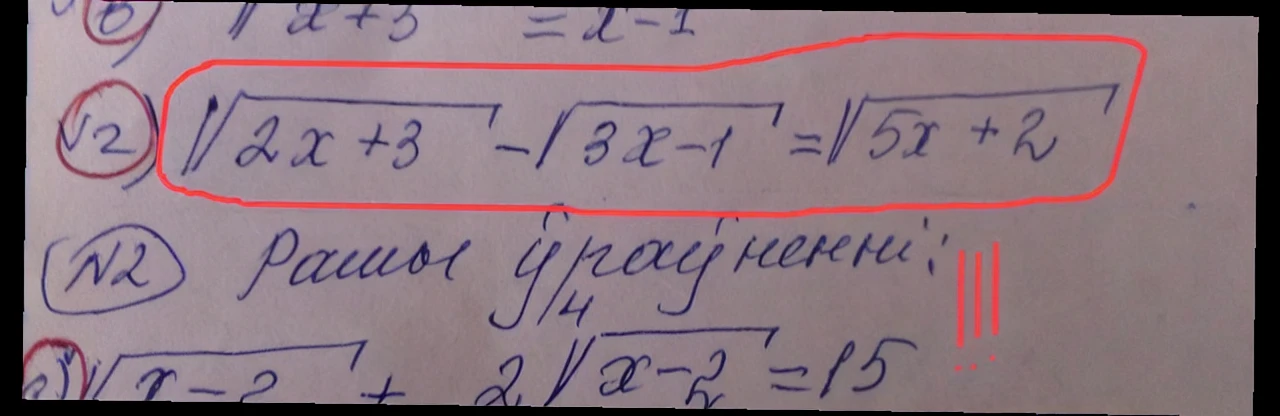 б) √x+3 = x-1
√2) √2x+3 - √3x-1 = √5x+2
N2 Рашы ўраўненні:
√x-2 + 2 ⁴√x-2 = 15